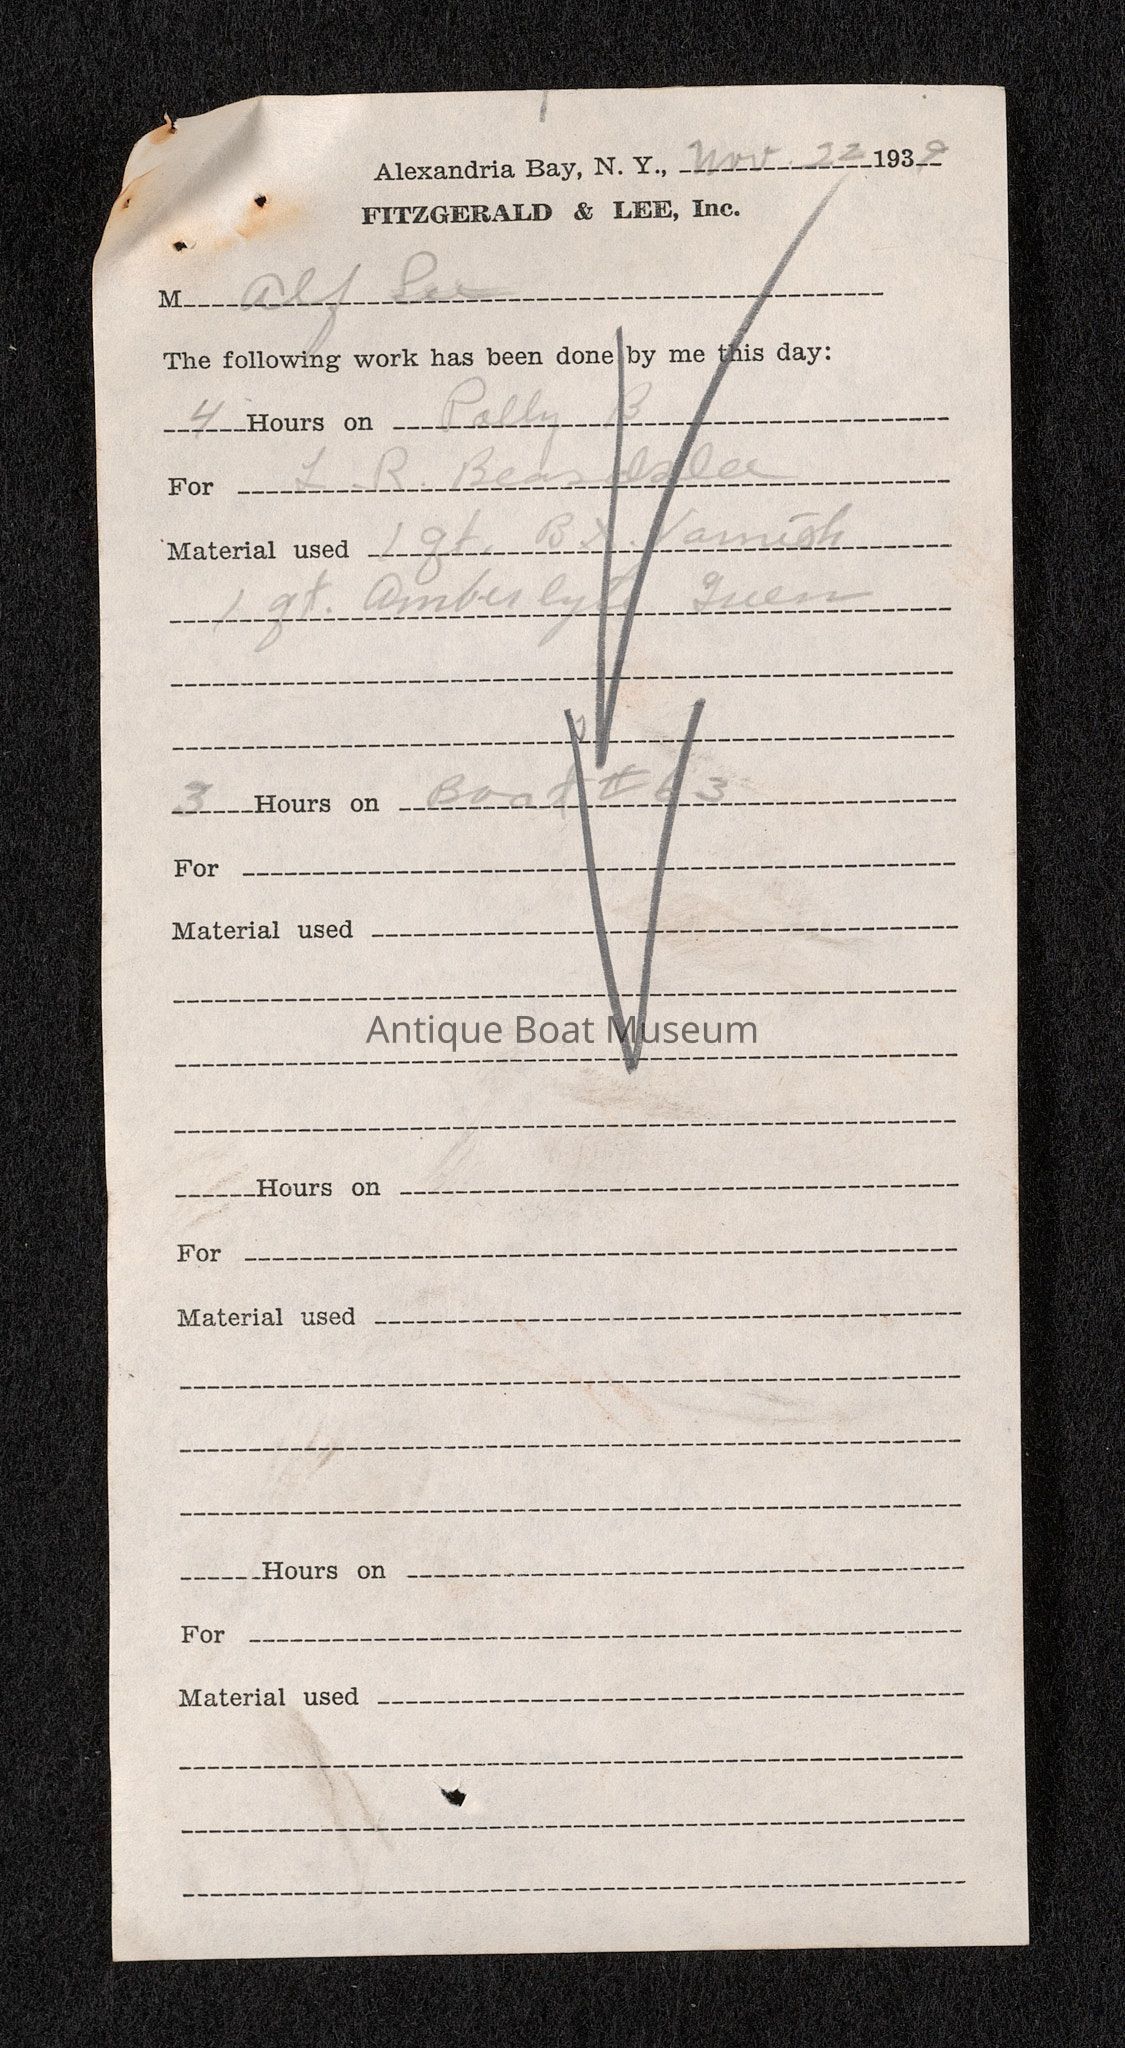 Alexandria Bay, N. Y., Nov. 22 1939
FITZGERALD & LEE, Inc.
M Alf Lee
The following work has been done by me this day:
4 Hours on Polly B
For L R. Beardslee
Material used 1 qt. B.X. Varnish
1 qt. Amberlyte Green
3 Hours on Boat # 63
For
Material used
Antique Boat Museum
Hours on
For
Material used
Hours on
For
Material used